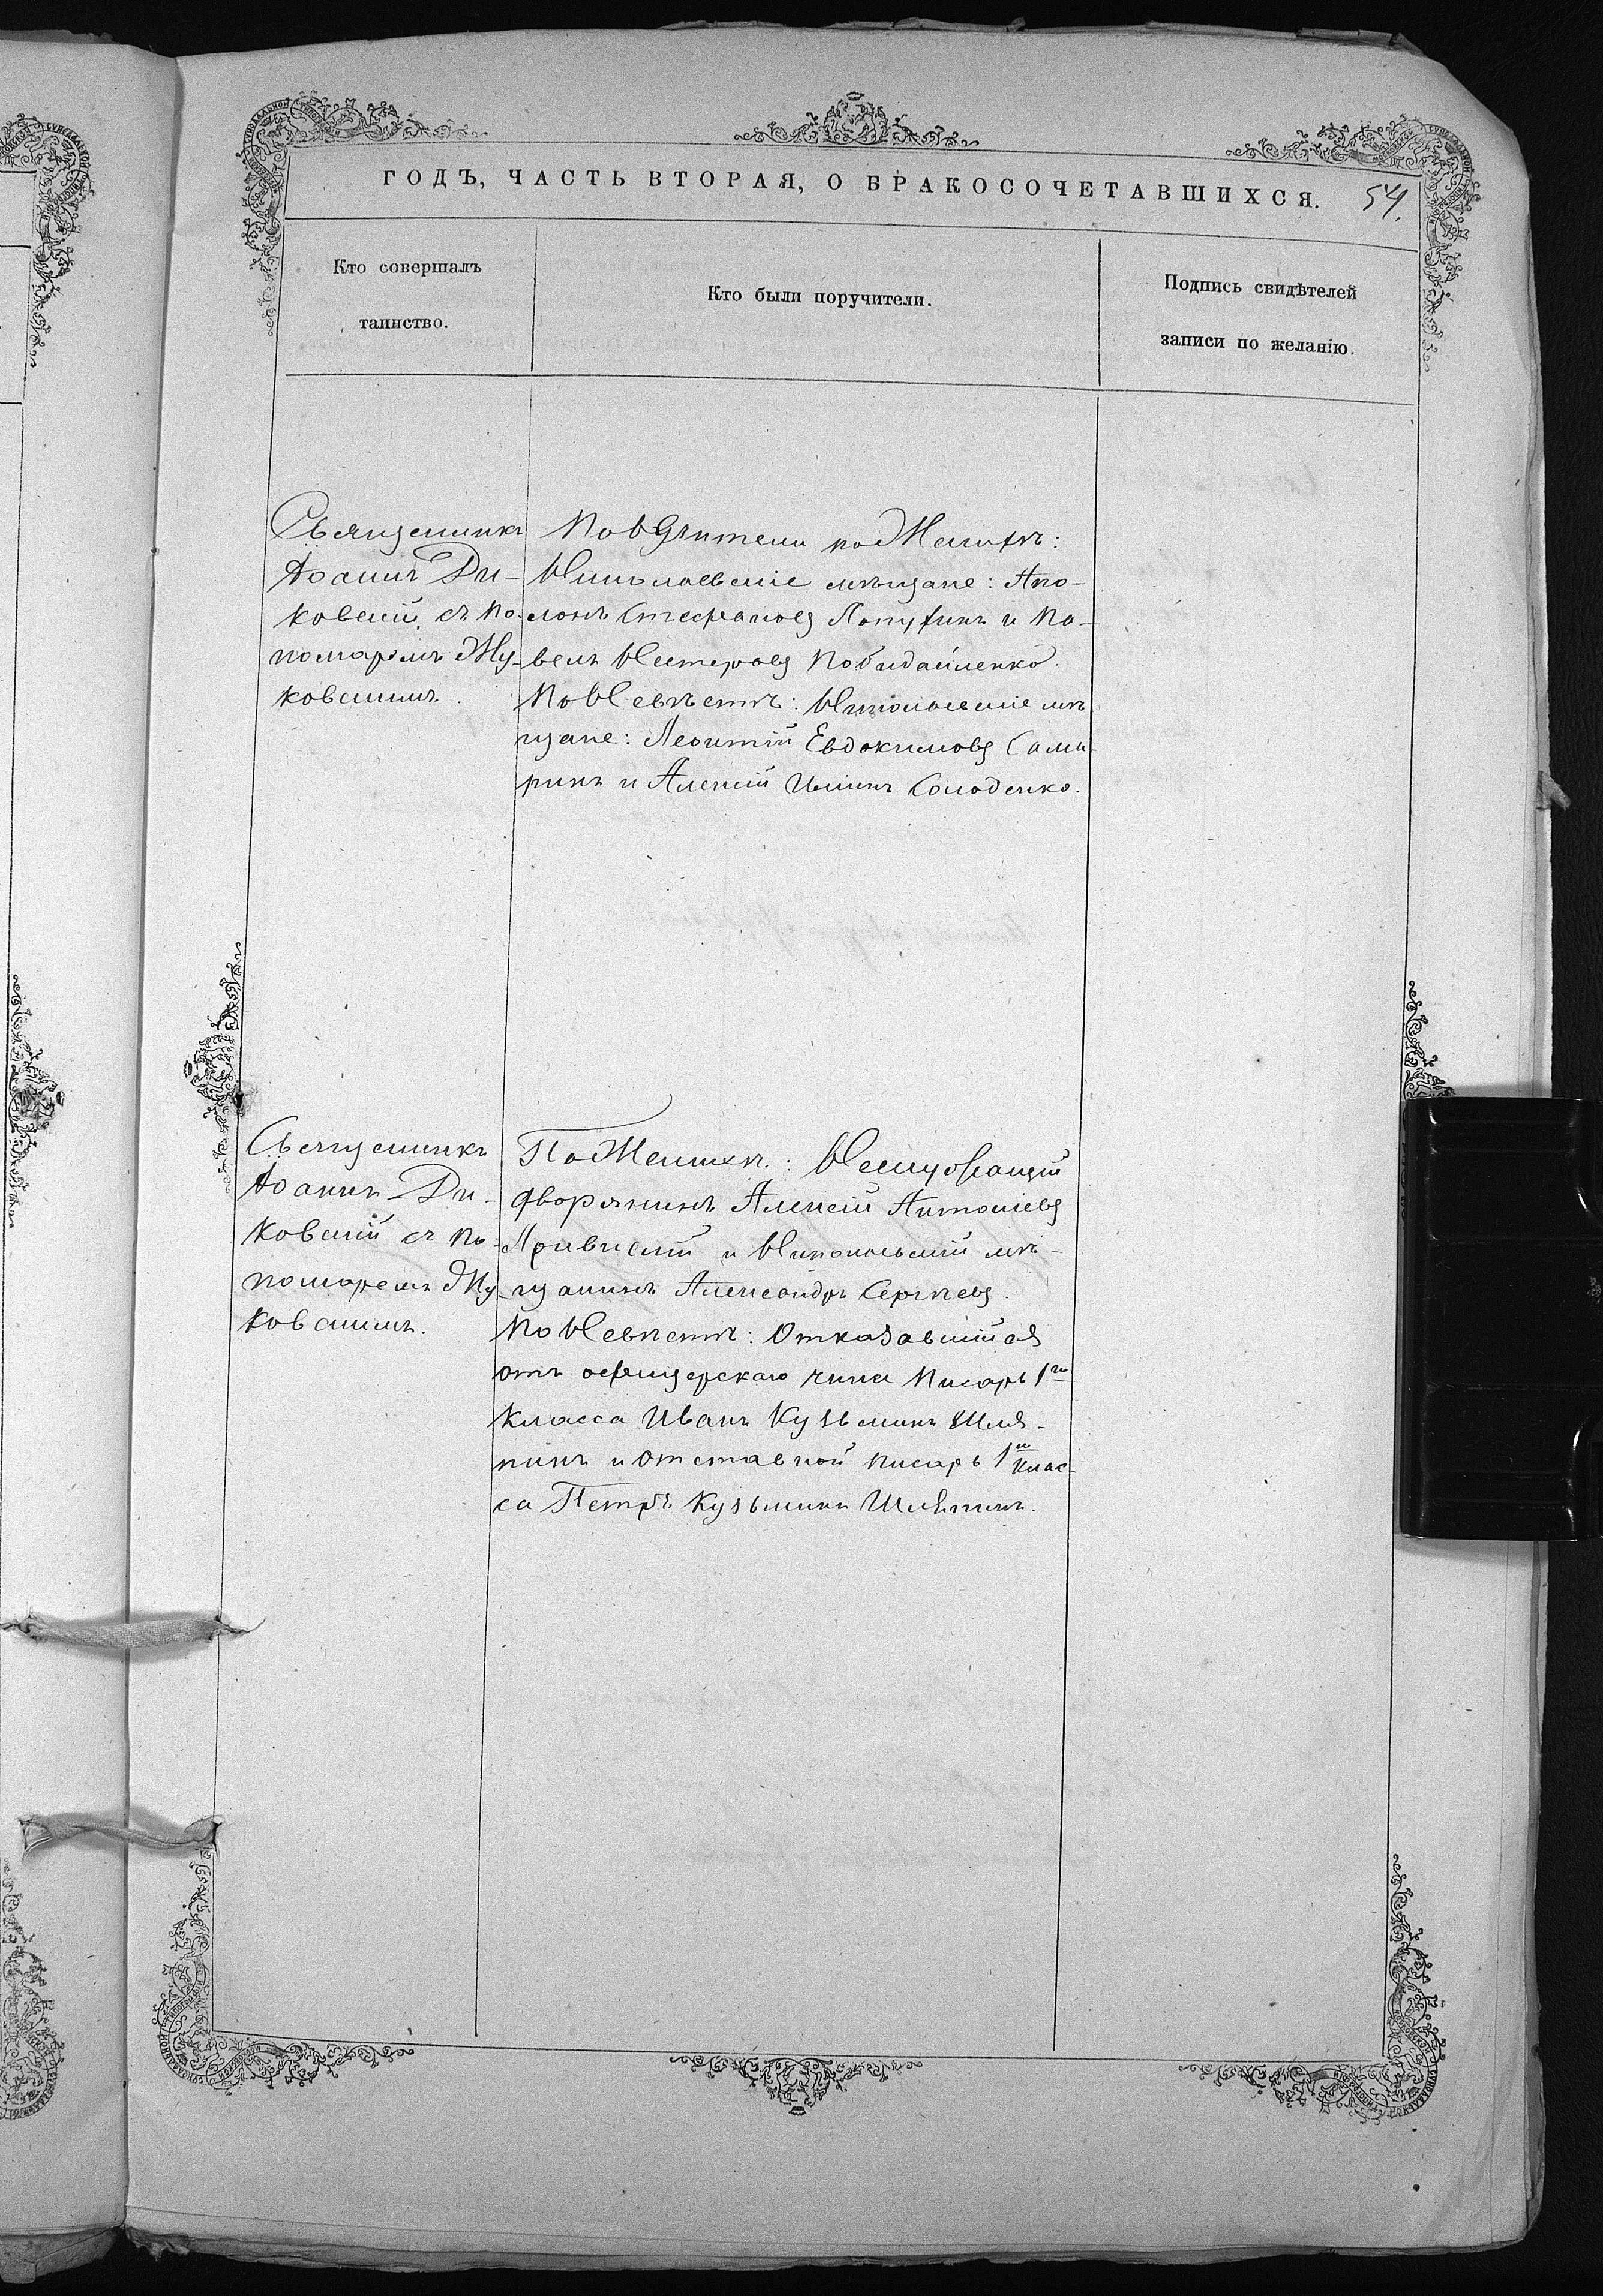 ГОДЪ, ЧАСТЬ ВТОРАЯ, О БРАКОСОЧЕТАВШИХСЯ.
54.
Кто совершалъ
таинство.
Кто были поручители.
Подпись свидѣтелей
записи по желанію.
Священникъ
Іоаннъ Ди-
ковскій съ по-
номаремъ Жу-
ковскимъ.
по Женихѣ:
Никопольскіе мѣщане: Апо-
лонъ Стефановъ Лопухинъ и Па-
велъ Нестеровъ Побидайленко.
По Невѣстѣ: Никопольскіе мѣ
щане: Леонтій Евдокимовъ Сама-
ринъ и Алексѣй Ильинъ Солоденко.
Священникъ
Іоаннъ Ди-
ковскій съ по-
номаремъ Жу-
ковскимъ.
По Женихѣ: Неслужащій
дворянинъ Алексѣй Антоніевъ
и Никопольскій мѣ-
щанинъ Александръ Сергѣевъ.
По Невѣстѣ: Отказавшійся
отъ офицерскаго чина писарь 1го
класса Иванъ Кузьминъ Шля-
пинъ и отставной писарь 1го клас-
са Петръ Кузьминъ Шляпинъ.